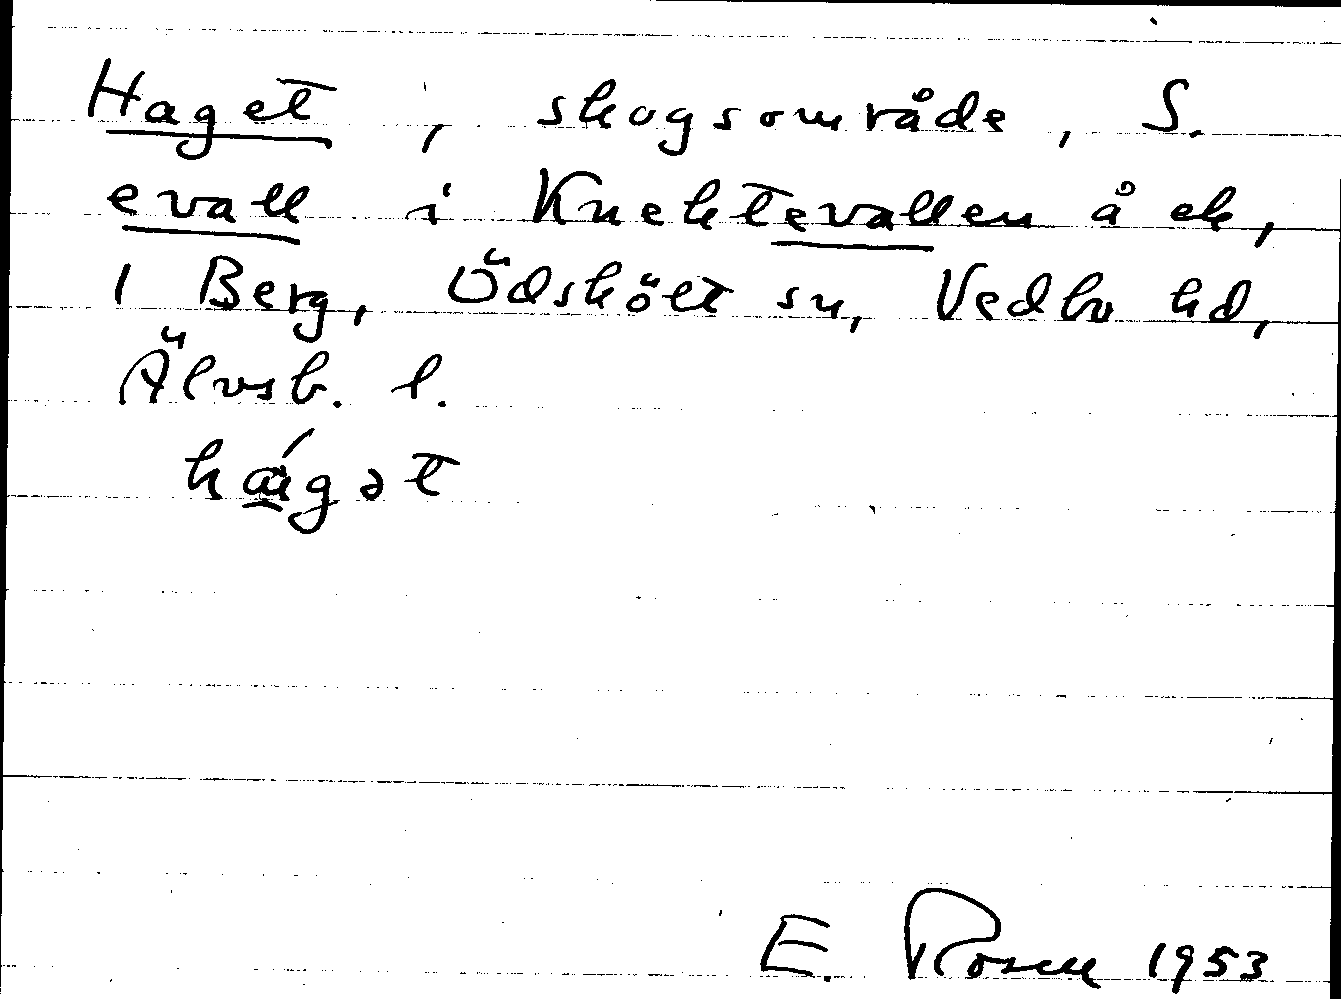 Haget, skogsområde, S.
evall i Knektevallen å ek,
1 Berg, Ödskölt sn, Vedbo hd,
Älvsb. l.
há̱gət
E. Rosell 1953